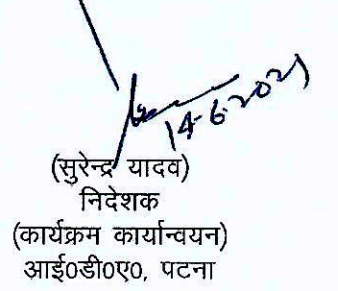 14-6-2021
(सुरेन्द्र यादव)
निदेशक
(कार्यक्रम कार्यान्वयन)
आई०डी०ए०, पटना